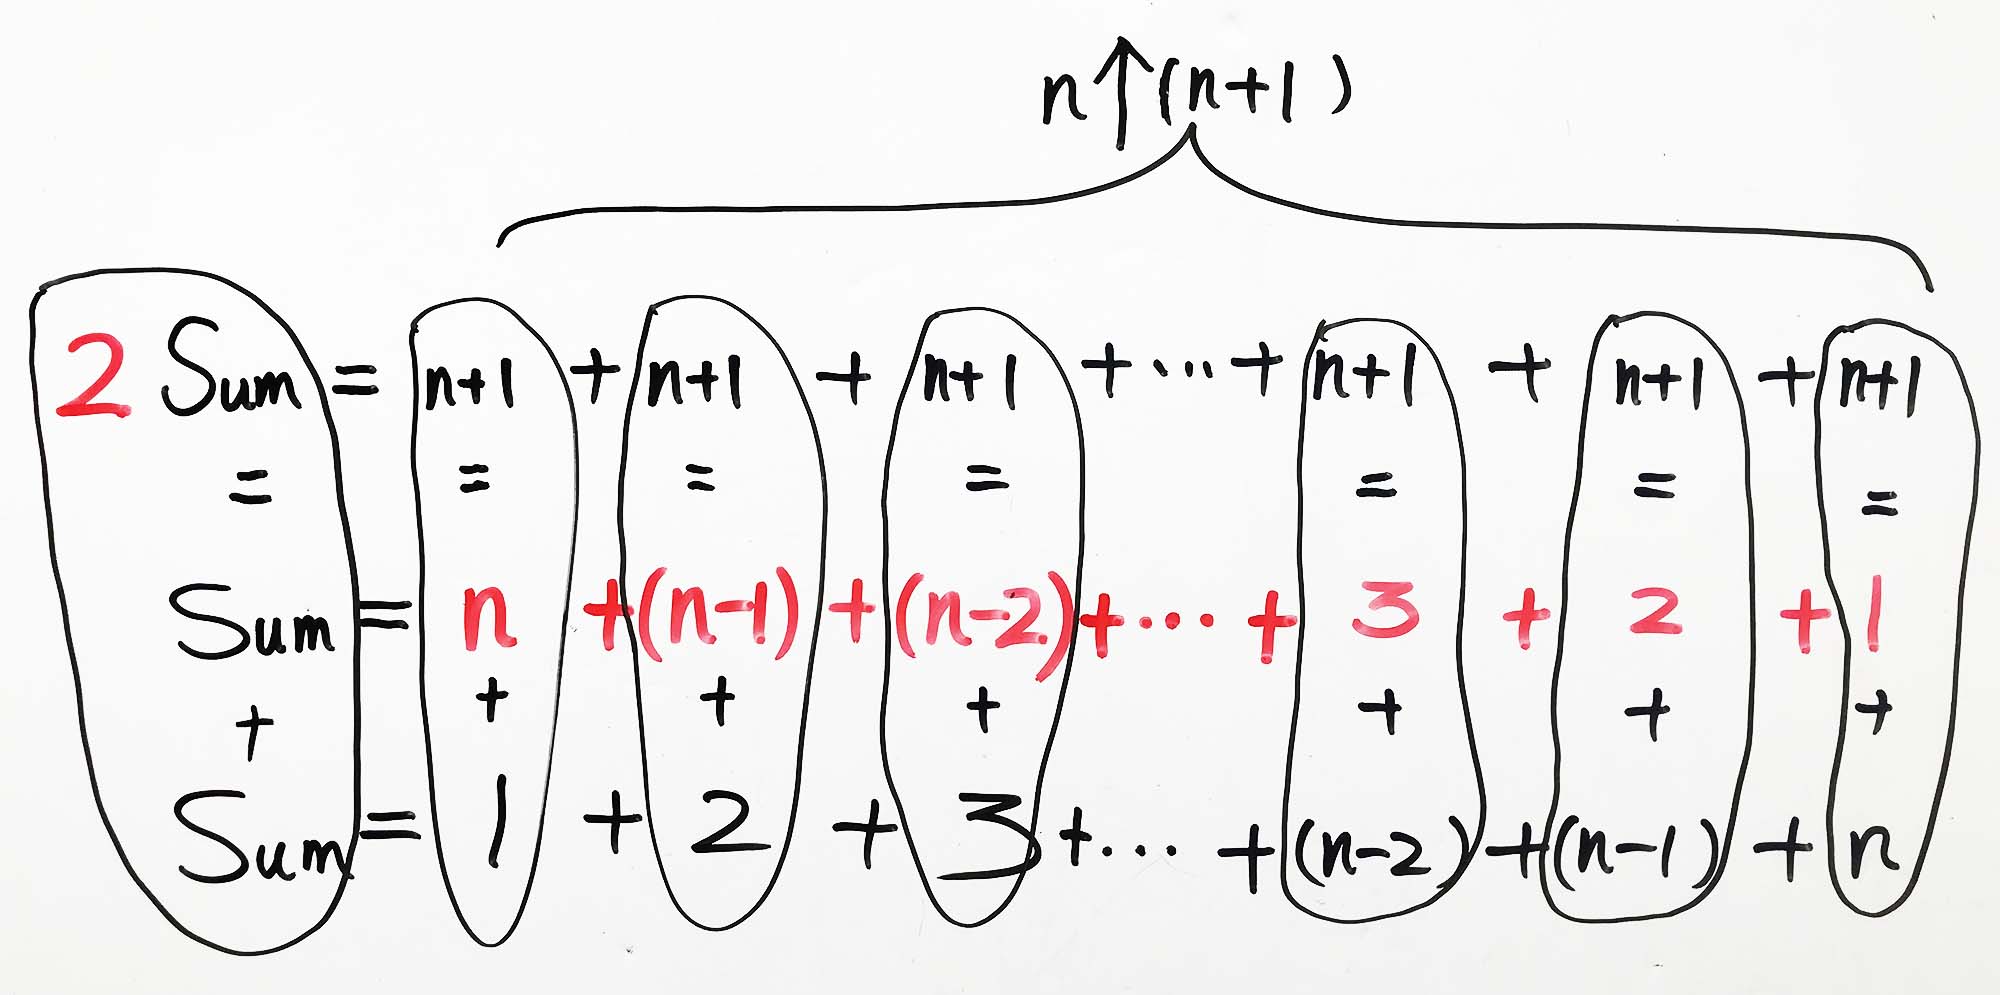 n↑(n+1)
2 Sum = n+1 + n+1 + n+1 +...+ n+1 + n+1 + n+1
= = = = = = =
Sum = n +(n-1) +(n-2)+...+ 3 + 2 +1
+ + + + + + +
Sum = 1 + 2 + 3 +... +(n-2) +(n-1) + n